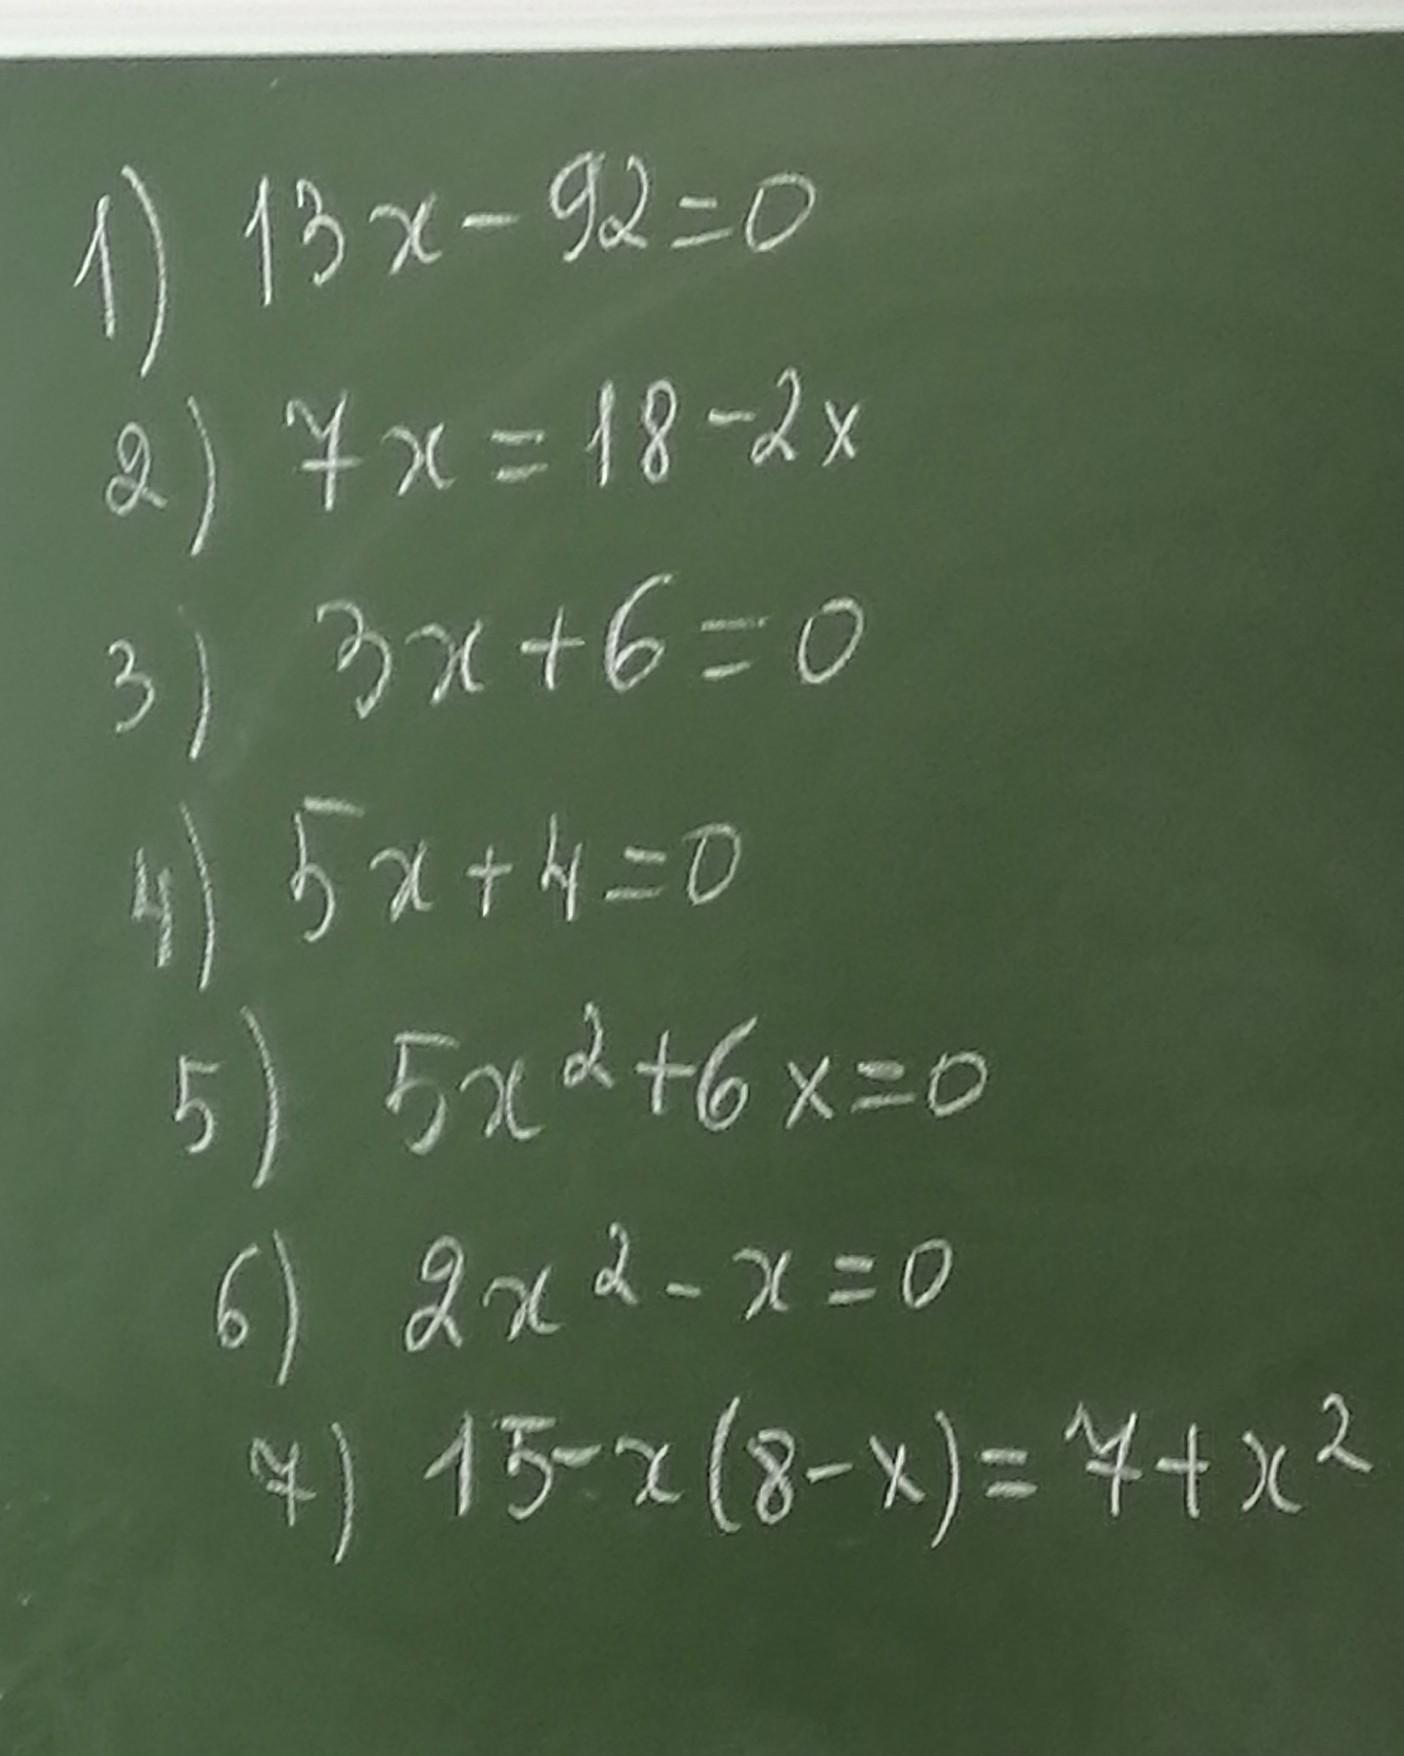 1) 13x - 92 = 0
2) 7x = 18 - 2x
3) 3x + 6 = 0
4) 5x + 4 = 0
5) 5x² + 6x = 0
6) 2x² - x = 0
7) 15 - x(8 - x) = 7 + x²